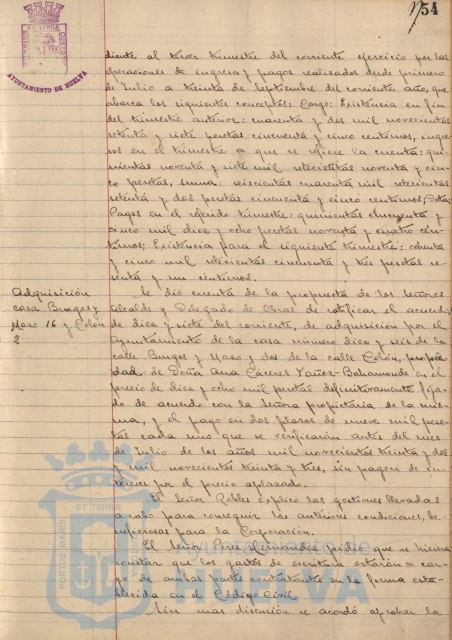 154
PORTUS MARIS ET TERRE CUSTODIA
AYUNTAMIENTO DE HUELVA
diente al tercer trimestre del corriente ejercicio por las
operaciones de ingresos y pagos realizados desde primero
de Julio a treinta de Septiembre del corriente año, que
abarca los siguientes conceptos: Cargo: Existencia en fin
del trimestre anterior: cuarenta y dos mil novecientas
setenta y siete pesetas cincuenta y cinco centimos, ingre-
sos en el trimestre a que se refiere la cuenta: qui-
nientas noventa y siete mil setecientas noventa y cin-
co pesetas, suma: seiscientas cuarenta mil setecientas
setenta y dos pesetas cincuenta y cinco centimos; Data:
Pagos en el referido trimestre: quinientas cincuenta y
cinco mil diez y ocho pesetas noventa y cuatro cén-
timos; Existencia para el siguiente trimestre: ochenta
y cinco mil setecientas cincuenta y tres pesetas se-
senta y un centimos.
Adquisición
casa Burgos y
Mazo 16 y Colón
2
Se dió cuenta de la propuesta de los Señores
Alcalde y Delegado de Obras de ratificar el acuerdo
de diez y siete del corriente, de adquisición por el
Ayuntamiento de la casa número diez y seis de la
calle Burgos y Mazo y dos de la calle Colón, propie-
dad de Doña Ana Cáceres Yañez-Bahamonde en el
precio de diez y ocho mil pesetas definitivamente fija-
do de acuerdo con la Señora propietaria de la mis-
ma, y el pago en dos plazos de nueve mil pese-
tas cada uno que se verificarán antes del mes
de Julio de los años mil novecientos treinta y dos
y mil novecientos treinta y tres, sin pagar de in-
tereses por el precio aplazado.
El Señor Robles explicó las gestiones llevadas
a cabo para conseguir las anteriores condiciones, be-
neficiosas para la Corporación.
El Señor Pérez Hernández pidió que se hiciera
constar que los gastos de escritura estarán a car-
go de ambas partes contratantes en la forma esta-
blecida en el Código Civil
Sin mas discusión se acordó aprobar la
PORTUS MARIS ET TERRE CUSTODIA
Ayuntamiento de
HUELVA